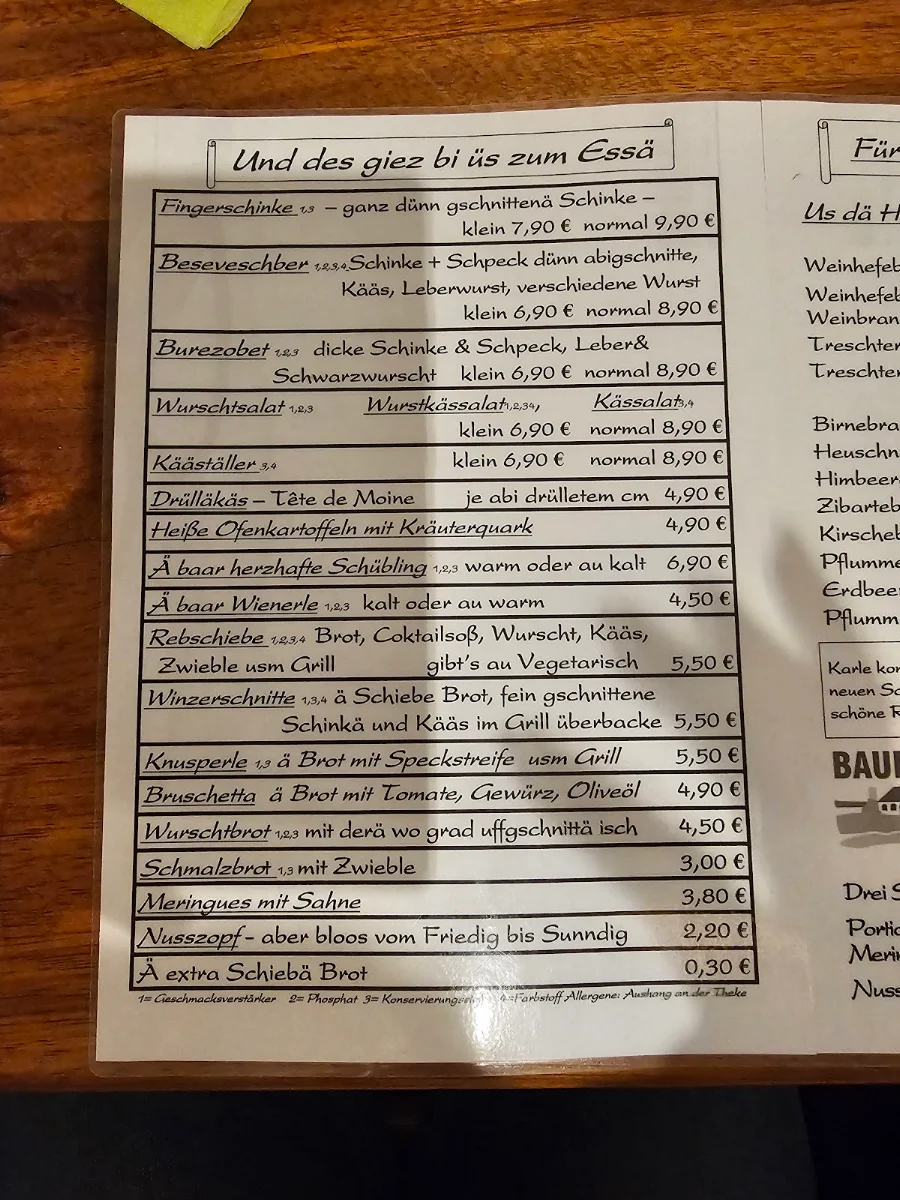 Und des giez bi üs zum Essä
Fingerschinke 1,3 – ganz dünn gschnittenä Schinke –
klein 7,90 € normal 9,90 €
Beseveschber 1,2,3,4 Schinke + Schpeck dünn abigschnitte,
Kääs, Leberwurst, verschiedene Wurst
klein 6,90 € normal 8,90 €
Burezobet 1,2,3 dicke Schinke & Schpeck, Leber&
Schwarzwurscht klein 6,90 € normal 8,90 €
Wurschtsalat 1,2,3 Wurstkässalat1,2,34, Kässalat3,4
klein 6,90 € normal 8,90 €
Kääställer 3,4 klein 6,90 € normal 8,90 €
Drülläkäs – Tête de Moine je abi drülletem cm 4,90 €
Heiße Ofenkartoffeln mit Kräuterquark 4,90 €
Ä baar herzhafte Schübling 1,2,3 warm oder au kalt 6,90 €
Ä baar Wienerle 1,2,3 kalt oder au warm 4,50 €
Rebschiebe 1,2,3,4 Brot, Coktailsoß, Wurscht, Kääs,
Zwieble usm Grill gibt's au Vegetarisch 5,50 €
Winzerschnitte 1,3,4 ä Schiebe Brot, fein gschnittene
Schinkä und Kääs im Grill überbacke 5,50 €
Knusperle 1,3 ä Brot mit Speckstreife usm Grill 5,50 €
Bruschetta ä Brot mit Tomate, Gewürz, Oliveöl 4,90 €
Wurschtbrot 1,2,3 mit derä wo grad uffgschnittä isch 4,50 €
Schmalzbrot 1,3 mit Zwieble 3,00 €
Meringues mit Sahne 3,80 €
Nusszopf - aber bloos vom Friedig bis Sunndig 2,20 €
Ä extra Schiebä Brot 0,30 €
1= Geschmacksverstärker 2= Phosphat 3= 4=Farbstoff Allergene: Aushang an der Theke
Für
Us dä H
Weinhefeb
Weinhefeb
Weinbran
Treschter
Treschter
Birnebra
Heuschn
Himbeer
Zibarteb
Kirscheb
Pflumme
Erdbeer
Pflumm
Karle kon
neuen Sc
schöne R
BAUE
Drei S
Portio
Merin
Nuss